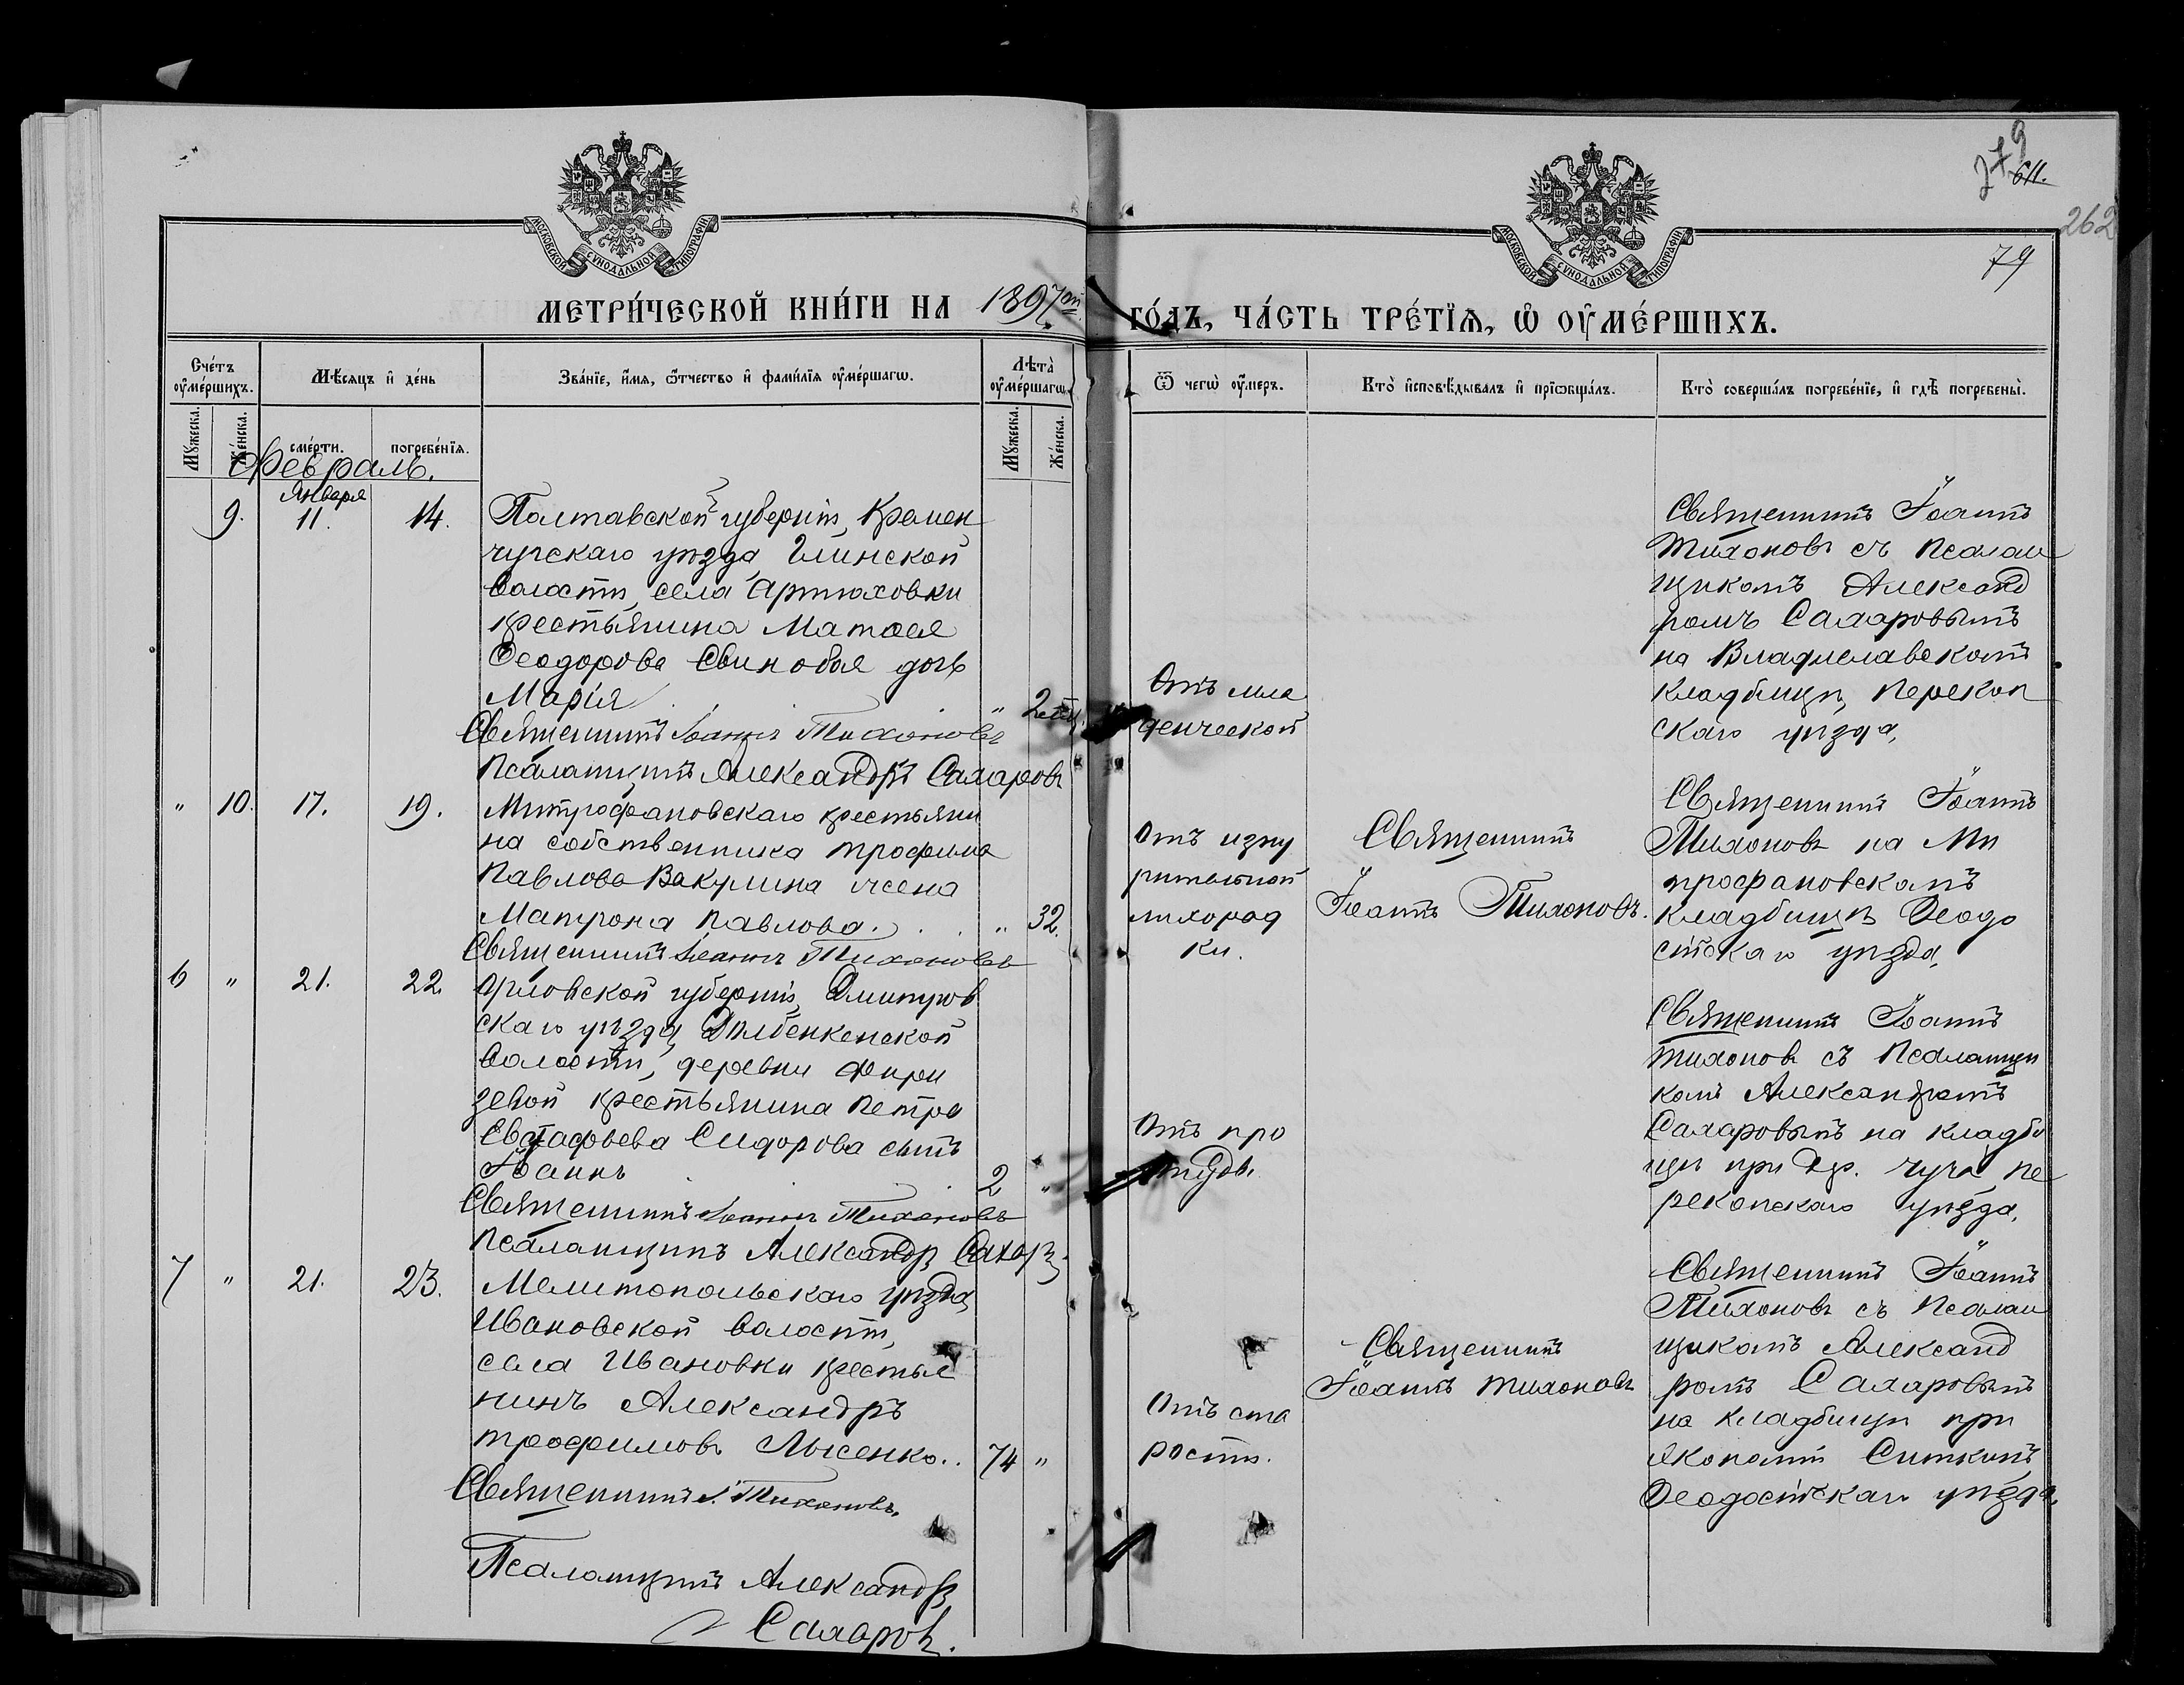 279
611.
262
79
МОСКОВСКОЙ СУНОДАЛЬНОЙ ТИПОГРАФІИ
МОСКОВСКОЙ СУНОДАЛЬНОЙ ТИПОГРАФІИ
МЕТРИ́ЧЕСКОЙ КНИ́ГИ НА 1897ой ГО́ДЪ, ЧА́СТЬ ТРЕ́ТЇѦ, Ѡ ОУМЕ́РШИХЪ.
Сче́тъ оуме́ршихъ.
Мѣ́сяцъ и де́нь
Зва́нїе, и́мя, ѻ́тчество и фами́лїя оуме́ршагѡ.
Лѣта̀ оуме́ршагѡ.
Ѿ чегѡ̀ оу́меръ.
Кто̀ исповѣ́дывалъ и прїѡбща́лъ.
Кто̀ соверша́лъ погребе́нїе, и гдѣ̀ погребены̀.
Мꙋ́жеска.
Же́нска.
сме́рти.
погребе́нїя.
Мꙋ́жеска.
Же́нска.
Февраль.
Января
9. 11. 14.
Полтавской губерніи, Кремен
чугскаго уѣзда, Глинской
волости, села Артюховки
крестьянина Матѳея
Ѳеодорова Свинобоя дочь
Марія . . . " 2
Отъ мла
денческой
Священникъ Іоаннъ
Тихоновъ съ псалом
щикомъ Александ
ромъ Сахаровымъ
на Владиславскомъ
кладбищѣ, Перекоп
скаго уѣзда.
Священникъ Іоаннъ Тихоновъ
Псаломщикъ Александръ Сахаровъ
" 10. 17. 19.
Митрофановскаго крестьяни
на собственника Трофима
Павлова Вакулина жена
Матрона Павлова. . . " 32.
Отъ изну
рительной
лихорад
ки.
Священникъ
Іоаннъ Тихоновъ.
Священникъ Іоаннъ
Тихоновъ на Ми
трофановскомъ
кладбищѣ Ѳеодо
сійскаго уѣзда.
Священникъ Іоаннъ Тихоновъ
6 " 21. 22.
Орловской губерніи, Дмитров
скаго уѣзда,
волости, деревни Фири
зевой крестьянина Петра
Евстафьева Сидорова сынъ
Іоаннъ . . 2 "
Отъ про
студы.
Священникъ Іоаннъ
Тихоновъ съ псаломщи
комъ Александромъ
Сахаровымъ на кладби
щѣ при дер. Чуча Пе
рекопскаго уѣзда.
Священникъ Іоаннъ Тихоновъ
Псаломщикъ Александръ Сахаровъ
7 " 21. 23.
Мелитопольскаго уѣзда,
Ивановской волости,
села Ивановки крестья
нинъ Александръ
Трофимовъ Лысенко.. 74 "
Отъ ста
рости.
Священникъ
Іоаннъ Тихоновъ
Священникъ Іоаннъ
Тихоновъ съ псалом
щикомъ Александ
ромъ Сахаровымъ
на кладбищѣ при
экономіи Ситкинъ
Ѳеодосійскаго уѣзда.
Священникъ І. Тихоновъ.
Псаломщикъ Александръ
Сахаровъ.